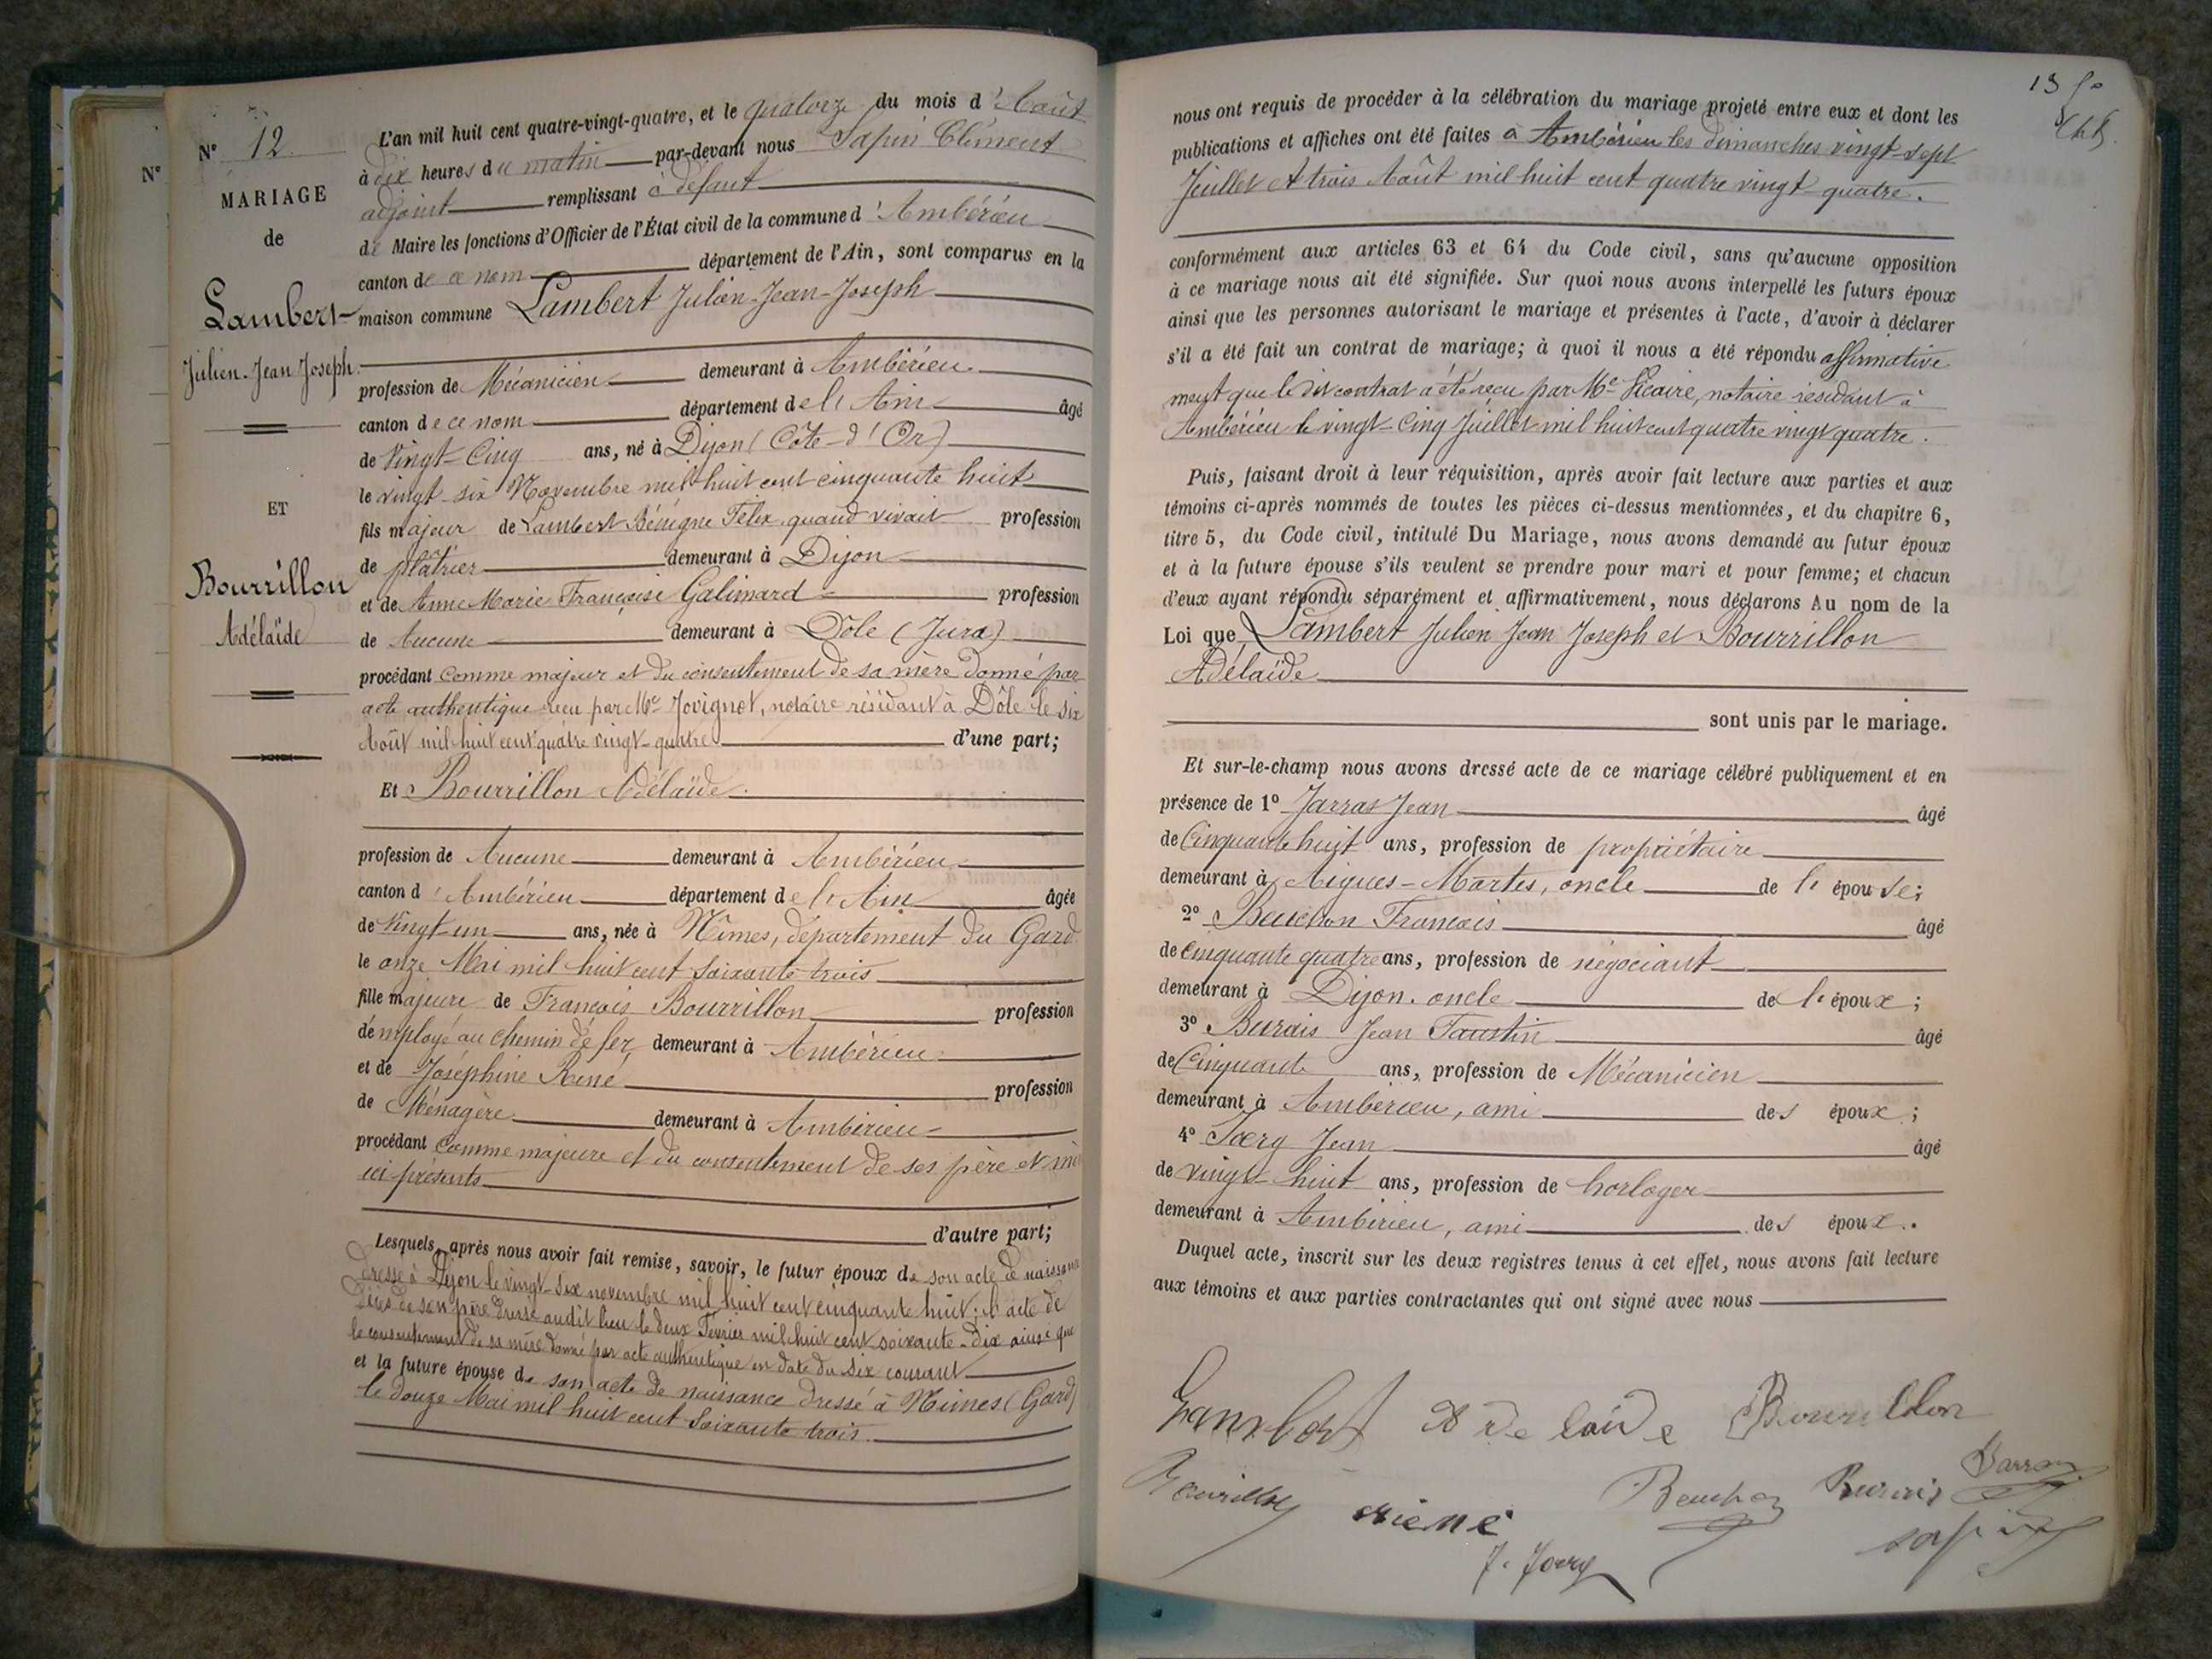 N°
N° 12
MARIAGE
de
Lambert
Julien-Jean Joseph.
ET
Bourrillon
Adélaïde
L'an mil huit cent quatre-vingt-quatre, et le quatorze du mois d'Août
à dix heures du matin par-devant nous Sapin Clément
adjoint remplissant à défaut
de Maire les fonctions d'Officier de l'État civil de la commune d'Ambérieu
canton de ce nom département de l'Ain, sont comparus en la
maison commune Lambert Julien-Jean-Joseph
profession de Mécanicien demeurant à Ambérieu
canton de ce nom département de l'Ain âgé
de Vingt-Cinq ans, né à Dijon (Côte-d'Or)
le vingt-six Novembre mil huit cent cinquante huit
fils majeur de Lambert Bénigne Félix quand vivait profession
de plâtrier demeurant à Dijon
et de Anne Marie Françoise Galimard profession
de Aucune demeurant à Dôle (Jura)
procédant comme majeur et du consentement de sa mère donné par
acte authentique reçu par Me Jovignot, notaire résidant à Dôle le six
Août mil huit cent quatre vingt-quatre d'une part;
Et Bourrillon Adélaïde.
profession de Aucune demeurant à Ambérieu
canton d'Ambérieu département de l'Ain âgée
de Vingt-un ans, née à Nîmes, département du Gard
le onze Mai mil huit cent soixante-trois
fille majeure de François Bourrillon profession
d'employé au chemin de fer, demeurant à Ambérieu
et de Joséphine René profession
de Ménagère demeurant à Ambérieu
procédant comme majeure et du consentement de ses père et mè
ici présents
d'autre part;
Lesquels, après nous avoir fait remise, savoir, le futur époux de son acte de naissance
dressé à Dijon le vingt-six novembre mil huit cent cinquante huit; l'acte de
décès de son père dressé audit lieu le deux Février mil huit cent soixante-dix ainsi que
le consentement de sa mère donné par acte authentique en date du six courant
et la future épouse de son acte de naissance dressé à Nîmes (Gard)
le douze Mai mil huit cent soixante trois.
13
nous ont requis de procéder à la célébration du mariage projeté entre eux et dont les
publications et affiches ont été faites à Ambérieu les dimanches vingt-sept
Juillet et trois Août mil huit cent quatre vingt quatre.
conformément aux articles 63 et 64 du Code civil, sans qu'aucune opposition
à ce mariage nous ait été signifiée. Sur quoi nous avons interpellé les futurs époux
ainsi que les personnes autorisant le mariage et présentes à l'acte, d'avoir à déclarer
s'il a été fait un contrat de mariage; à quoi il nous a été répondu affirmative
ment que le dit contrat a été reçu par Me Sicaire, notaire résidant à
Ambérieu le vingt-cinq Juillet mil huit cent quatre vingt quatre.
Puis, faisant droit à leur réquisition, après avoir fait lecture aux parties et aux
témoins ci-après nommés de toutes les pièces ci-dessus mentionnées, et du chapitre 6,
titre 5, du Code civil, intitulé Du Mariage, nous avons demandé au futur époux
et à la future épouse s'ils veulent se prendre pour mari et pour femme; et chacun
d'eux ayant répondu séparément et affirmativement, nous déclarons Au nom de la
Loi que Lambert Julien Jean Joseph et Bourrillon
Adélaïde
sont unis par le mariage.
Et sur-le-champ nous avons dressé acte de ce mariage célébré publiquement et en
présence de 1° Jarras Jean âgé
de Cinquante huit ans, profession de propriétaire
demeurant à Aigues-Mortes, oncle de l'épouse;
2° Beuchon François âgé
de cinquante quatre ans, profession de négociant
demeurant à Dijon. oncle de l'époux;
3° Burais Jean Faustin âgé
de Cinquante ans, profession de Mécanicien
demeurant à Ambérieu, ami des époux;
4° Joerg Jean âgé
de vingt-huit ans, profession de horloger
demeurant à Ambérieu, ami des époux.
Duquel acte, inscrit sur les deux registres tenus à cet effet, nous avons fait lecture
aux témoins et aux parties contractantes qui ont signé avec nous
Lambert Adelaide Bourrillon
Bourrillon René Beuchon Burais Jarras
J. Joerg Sapin